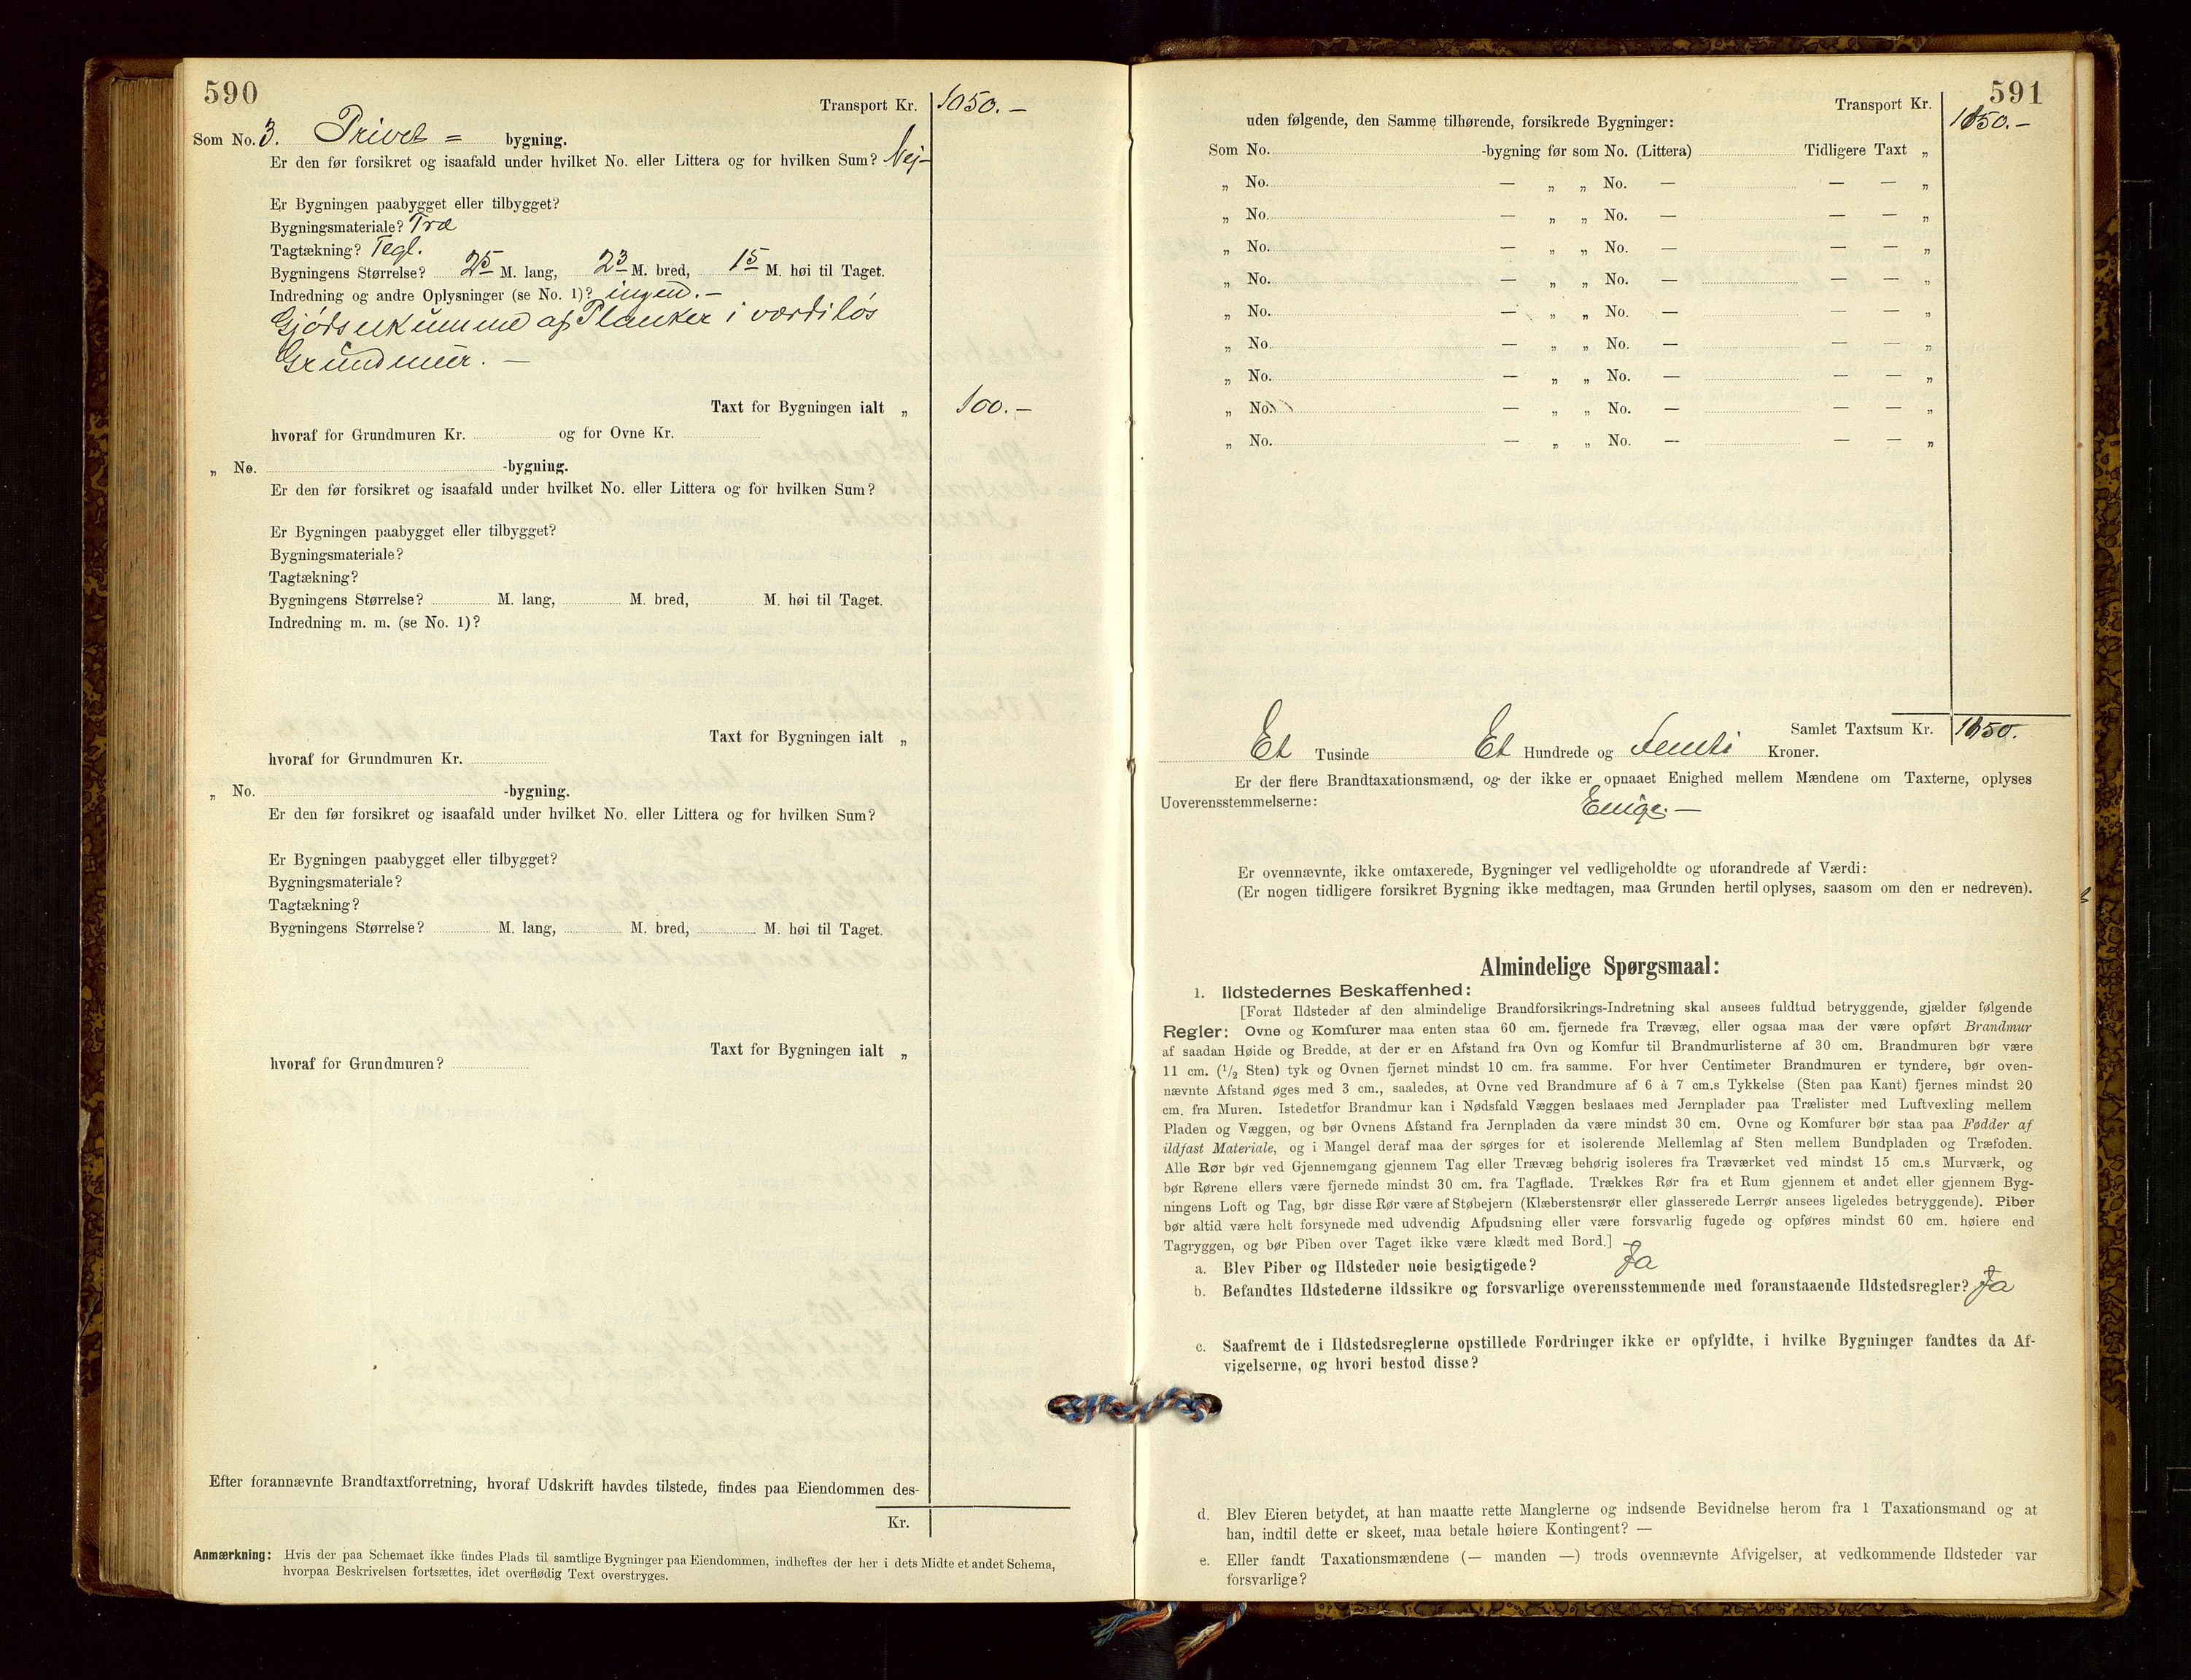 590
Transport Kr. 1050.–
Som No. 3. Privet = bygning.
Er den før forsikret og isaafald under hvilket No. eller Littera og for hvilken Sum? Nej–
Er Bygningen paabygget eller tilbygget?
Bygningsmateriale? Træ
Tagtækning? Tegl.
Bygningens Størrelse? 25 M. lang, 23 M. bred, 15 M. høi til Taget.
Indredning og andre Oplysninger (se No. 1)? ingen.–
Gjødselkumme af Planker i værdiløs
Grundmur. –
Taxt for Bygningen ialt „ 100.–
hvoraf for Grundmuren Kr. og for Ovne Kr.
„ No. -bygning.
Er den før forsikret og isaafald under hvilket No. eller Littera og for hvilken Sum?
Er Bygningen paabygget eller tilbygget?
Bygningsmateriale?
Tagtækning?
Bygningens Størrelse? M. lang, M. bred, M. høi til Taget.
Indredning m. m. (se No. 1)?
Taxt for Bygningen ialt „
hvoraf for Grundmuren Kr.
„ No. -bygning.
Er den før forsikret og isaafald under hvilket No. eller Littera og for hvilken Sum?
Er Bygningen paabygget eller tilbygget?
Bygningsmateriale?
Tagtækning?
Bygningens Størrelse? M. lang, M. bred, M. høi til Taget.
Taxt for Bygningen ialt „
hvoraf for Grundmuren?
Efter forannævnte Brandtaxtforretning, hvoraf Udskrift havdes tilstede, findes paa Eiendommen des-
Kr.
Anmærkning: Hvis der paa Schemaet ikke findes Plads til samtlige Bygninger paa Eiendommen, indheftes der her i dets Midte et andet Schema,
hvorpaa Beskrivelsen fortsættes, idet overflødig Text overstryges.
591
Transport Kr. 1150.–
uden følgende, den Samme tilhørende, forsikrede Bygninger:
Som No. -bygning før som No. (Littera) Tidligere Taxt „
„ No. — „ „ No. — — — „
„ No. — „ „ No. — — — „
„ No. — „ „ No. — — — „
„ No. — „ „ No. — — — „
„ No. — „ „ No. — — — „
„ No. — „ „ No. — — — „
„ No. — „ „ No. — — — „
„ No. — „ „ No. — — — „
„ No. — „ „ No. — — — „
Samlet Taxtsum Kr. 1150.
Et Tusinde Et Hundrede og Femti Kroner.
Er der flere Brandtaxationsmænd, og der ikke er opnaaet Enighed mellem Mændene om Taxterne, oplyses
Uoverensstemmelserne: Enige.–
Er ovennævnte, ikke omtaxerede, Bygninger vel vedligeholdte og uforandrede af Værdi:
(Er nogen tidligere forsikret Bygning ikke medtagen, maa Grunden hertil oplyses, saasom om den er nedreven).
Almindelige Spørgsmaal:
1. Ildstedernes Beskaffenhed:
[Forat Ildsteder af den almindelige Brandforsikrings-Indretning skal ansees fuldtud betryggende, gjælder følgende
Regler: Ovne og Komfurer maa enten staa 60 cm. fjernede fra Trævæg, eller ogsaa maa der være opført Brandmur
af saadan Høide og Bredde, at der er en Afstand fra Ovn og Komfur til Brandmurlisterne af 30 cm. Brandmuren bør være
11 cm. (1/2 Sten) tyk og Ovnen fjernet mindst 10 cm. fra samme. For hver Centimeter Brandmuren er tyndere, bør oven-
nævnte Afstand øges med 3 cm., saaledes, at Ovne ved Brandmure af 6 à 7 cm.s Tykkelse (Sten paa Kant) fjernes mindst 20
cm. fra Muren. Istedetfor Brandmur kan i Nødsfald Væggen beslaaes med Jernplader paa Trælister med Luftvexling mellem
Pladen og Væggen, og bør Ovnens Afstand fra Jernpladen da være mindst 30 cm. Ovne og Komfurer bør staa paa Fødder af
ildfast Materiale, og i Mangel deraf maa der sørges for et isolerende Mellemlag af Sten mellem Bundpladen og Træfoden.
Alle Rør bør ved Gjennemgang gjennem Tag eller Trævæg behørig isoleres fra Træværket ved mindst 15 cm.s Murværk, og
bør Rørene ellers være fjernede mindst 30 cm. fra Tagflade. Trækkes Rør fra et Rum gjennem et andet eller gjennem Byg-
ningens Loft og Tag, bør disse Rør være af Støbejern (Klæberstensrør eller glasserede Lerrør ansees ligeledes betryggende). Piber
bør altid være helt forsynede med udvendig Afpudsning eller være forsvarlig fugede og opføres mindst 60 cm. høiere end
Tagryggen, og bør Piben over Taget ikke være klædt med Bord.]
a. Blev Piber og Ildsteder nøie besigtigede? Ja
b. Befandtes Ildstederne ildssikre og forsvarlige overensstemmende med foranstaaende Ildstedsregler? Ja
c. Saafremt de i Ildstedsreglerne opstillede Fordringer ikke er opfyldte, i hvilke Bygninger fandtes da Af-
vigelserne, og hvori bestod disse?
d. Blev Eieren betydet, at han maatte rette Manglerne og indsende Bevidnelse herom fra 1 Taxationsmand og at
han, indtil dette er skeet, maa betale høiere Kontingent? —
e. Eller fandt Taxationsmændene (— manden —) trods ovennævnte Afvigelser, at vedkommende Ildsteder var
forsvarlige?